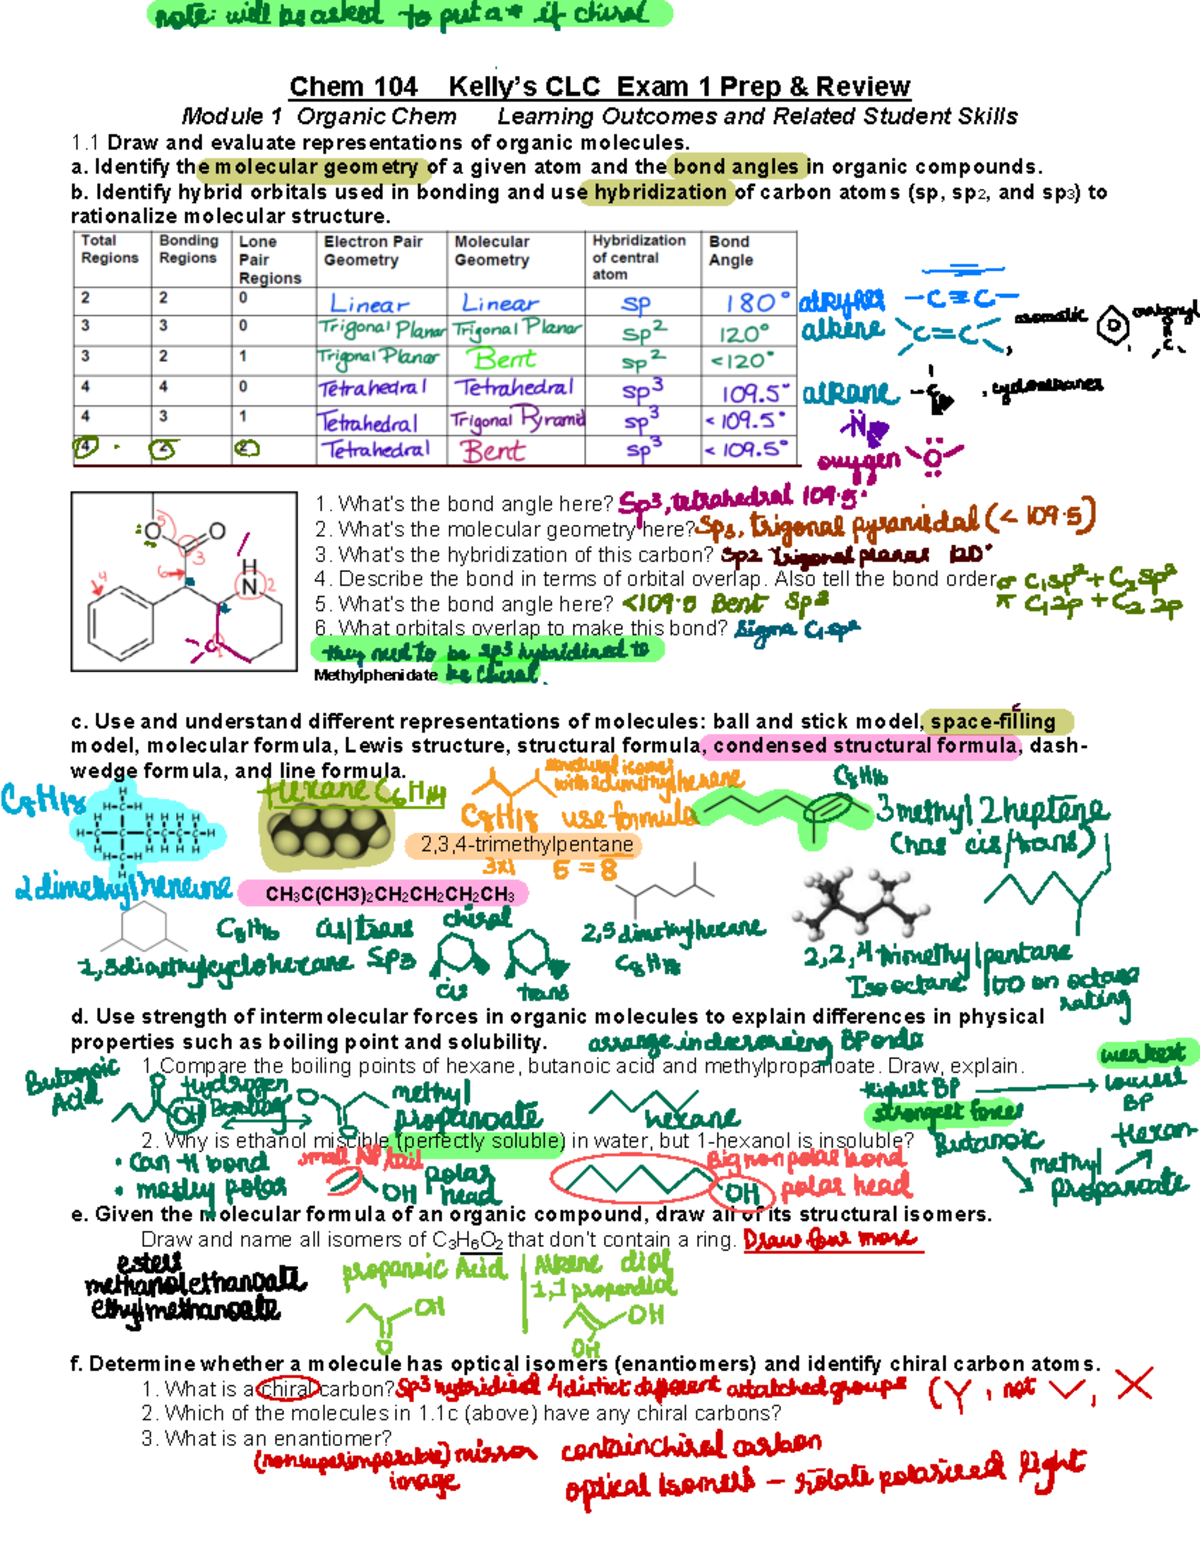 note: will be asked to put a * if chiral
Chem 104 Kelly's CLC Exam 1 Prep & Review
Module 1 Organic Chem Learning Outcomes and Related Student Skills
1.1 Draw and evaluate representations of organic molecules.
a. Identify the molecular geometry of a given atom and the bond angles in organic compounds.
b. Identify hybrid orbitals used in bonding and use hybridization of carbon atoms (sp, sp2, and sp3) to
rationalize molecular structure.
Total Regions Bonding Regions Lone Pair Regions Electron Pair Geometry Molecular Geometry Hybridization of central atom Bond Angle
2 2 0 Linear Linear sp 180°
3 3 0 Trigonal Planar Trigonal Planar sp² 120°
3 2 1 Trigonal Planar Bent sp² <120°
4 4 0 Tetrahedral Tetrahedral sp³ 109.5°
4 3 1 Tetrahedral Trigonal Pyramid sp³ < 109.5°
4 2 2 Tetrahedral Bent sp³ < 109.5°
-C≡C-
alkene C=C aromatic
alkane -C-
N
oxygen O
1. What's the bond angle here? Sp3, tetrahedral 109.5°
2. What's the molecular geometry here? Sp3, trigonal pyramidal (< 109.5)
3. What's the hybridization of this carbon? Sp2 Trigonal planar 120°
4. Describe the bond in terms of orbital overlap. Also tell the bond order. σ C₁sp² + C₂sp²
π C₁2p + C₂ 2p
5. What's the bond angle here? <109.5 Bent Sp3
6. What orbitals overlap to make this bond? Sigma
they need to be sp3 hybridized to
Methylphenidate be chiral.
O O H N
1 2 3 4 5 6
c. Use and understand different representations of molecules: ball and stick model, space-filling
model, molecular formula, Lewis structure, structural formula, condensed structural formula, dash-
wedge formula, and line formula.
C8H18
Hexane C6H14
structural isomer with 2 dimethylhexane
C8H18 use formula
2,3,4-trimethylpentane
3x1 5 = 8
C8H16
3 methyl 2 heptene
(has cis/trans)
CH3C(CH3)2CH2CH2CH2CH3
C8H16 cis/trans Sp3
chiral
cis trans
2,5 dimethylhexane
C8H18
2,2,4 trimethylpentane
Isooctane 100 on octane rating
d. Use strength of intermolecular forces in organic molecules to explain differences in physical
properties such as boiling point and solubility.
1 Compare the boiling points of hexane, butanoic acid and methylpropanoate. Draw, explain.
Butanoic Acid
OH
Hydrogen Bonding
methyl propanoate
hexane
highest BP → lowest BP
weakest
strongest forces
Butanoic
methyl propanoate
Hexan
2. Why is ethanol miscible (perfectly soluble) in water, but 1-hexanol is insoluble?
• Can H bond
• mostly polar
small NP tail
OH polar head
OH polar head
e. Given the molecular formula of an organic compound, draw all of its structural isomers.
Draw and name all isomers of C3H6O2 that don't contain a ring. Draw four more
esters
ethylmethanoate
propanoic Acid
OH
O
Alkene diol
OH
OH
f. Determine whether a molecule has optical isomers (enantiomers) and identify chiral carbon atoms.
1. What is a chiral carbon? Sp3 hybridized 4 distict different attatched groups (Y, not V, X
2. Which of the molecules in 1.1c (above) have any chiral carbons?
3. What is an enantiomer?
(nonsuperimposable) mirror image
contain chiral carbon
optical isomers - rotate polarized light